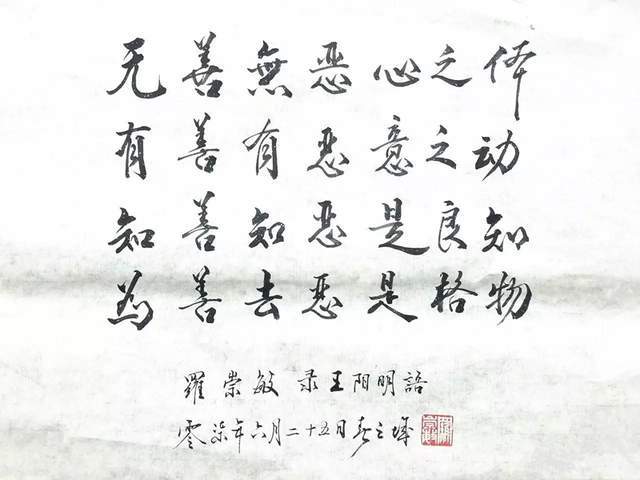 无善無恶心之体
有善有恶意之动
知善知恶是良知
为善去恶是格物
羅崇敏 录王阳明語
零柒年六月二十五日春之城